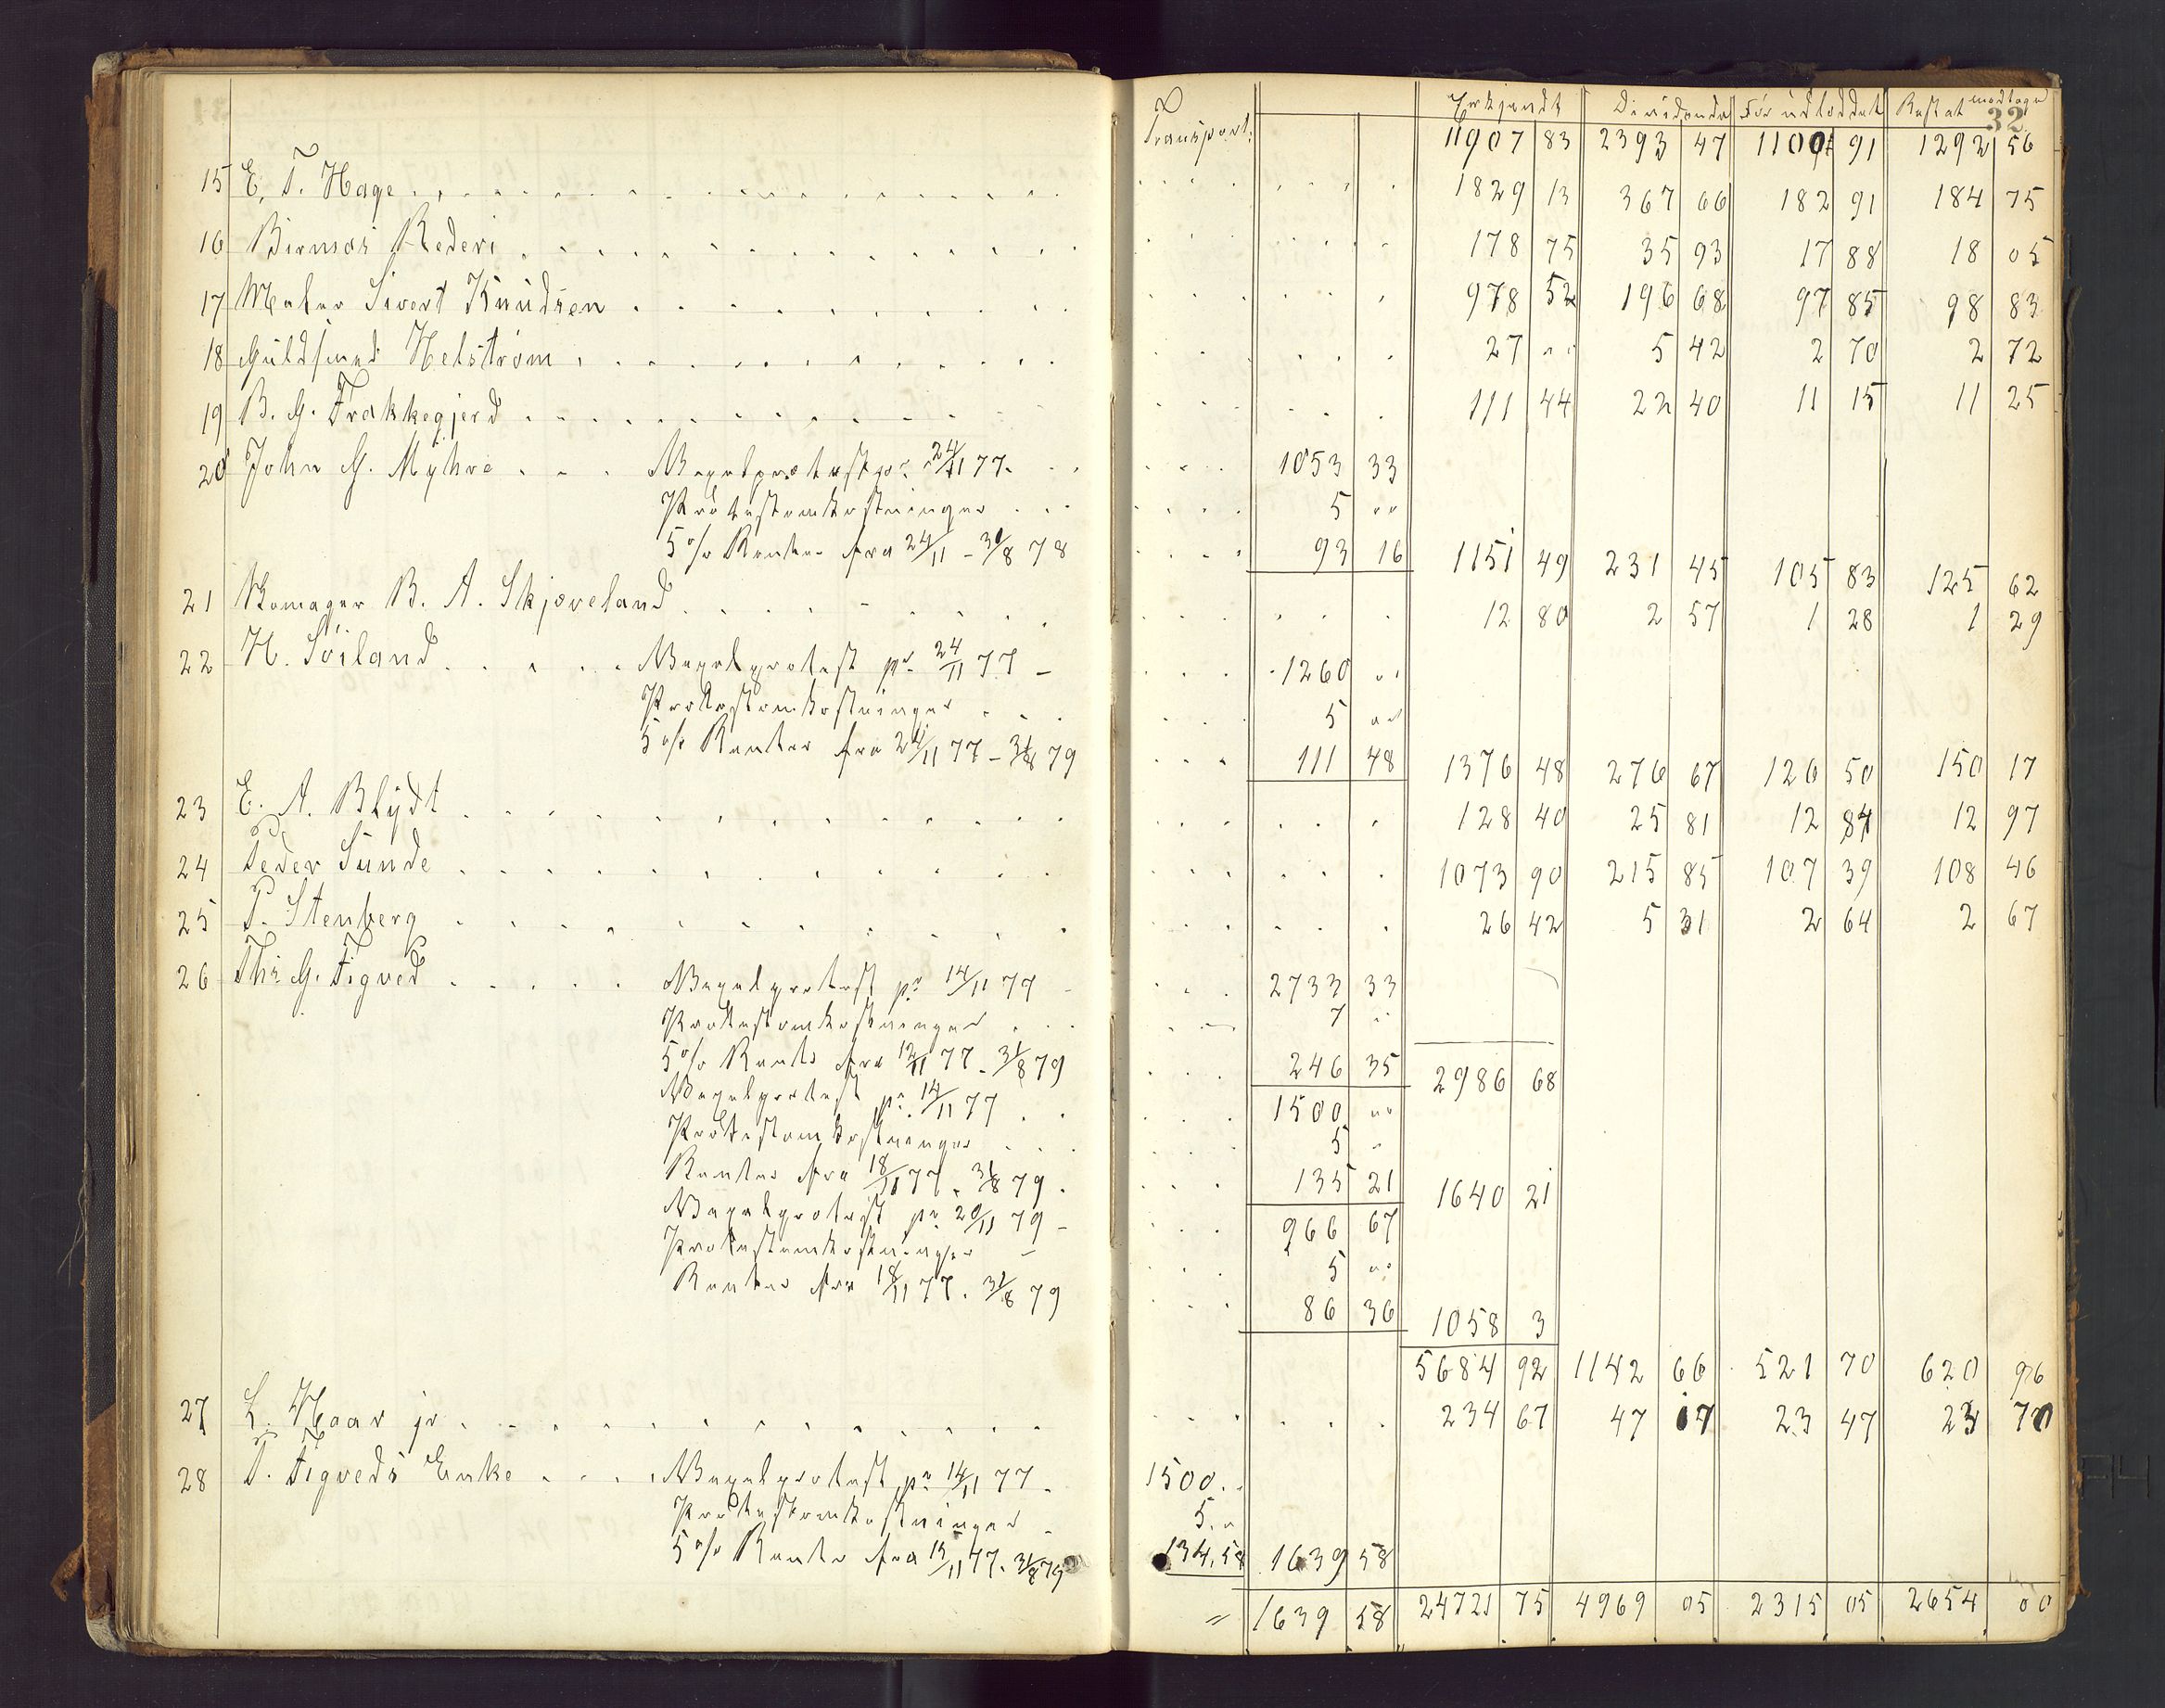 Transport: Erkjendt Dividende Før udloddet Rest at modtage 32
11907 83 2393 47 1100 91 1292 56
15 E. T. Hage 1829 13 367 66 182 91 184 75
16 Birmas Rederi 178 75 35 93 17 88 18 05
17 Maler Sivert Knudsen 978 52 196 68 97 85 98 83
18 Guldsmed Helstrøm 27 " 5 42 2 70 2 72
19 B. G. Trakkegjerd 111 44 22 40 11 15 11 25
20 John G. Myhre Vexelprotest pr 24/11 77 1053 33
Protestomkostninger 5 "
5 o/o Renter fra 24/11 - 31/8 78 93 16 1151 49 231 45 105 83 125 62
21 Komager B. A. Skjæveland 12 80 2 57 1 28 1 29
22 H. Söiland Vexelprotest pr 24/11 77 1260 "
Protestomkostninger 5 "
5 o/o Renter fra 24/11 77 - 31/8 79 111 48 1376 48 276 67 126 50 150 17
23 E. A. Blydt 128 40 25 81 12 84 12 97
24 Peder Sunde 1073 90 215 85 107 39 108 46
25 P. Stenberg 26 42 5 31 2 64 2 67
26 Ths G. Tigved Vexelprotest pr 14/11 77 2733 33
Protestomkostninger 7 "
5 o/o Rente fra 12/11 77 - 31/8 79 246 35 2986 68
Vexelprotest pr 14/11 77 1500 "
Protestomkostninger 5 "
Renter fra 18/11 77 - 31/8 79 135 21 1640 21
Vexelprotest pr 20/11 79 966 67
Protestomkostninger 5 "
Renter fra 18/11 77 - 31/8 79 86 36 1058 3
5684 92 1142 66 521 70 620 96
27 L. Haar jr 234 67 47 17 23 47 23 70
28 T. Tigveds Enke Vexelprotest pr 14/11 77 1500 "
Protestomkostninger 5 "
5 o/o Rente fra 15/11 77 - 31/8 79 134,58 1639 58
" 1639 58 24721 75 4969 05 2315 05 2654 00